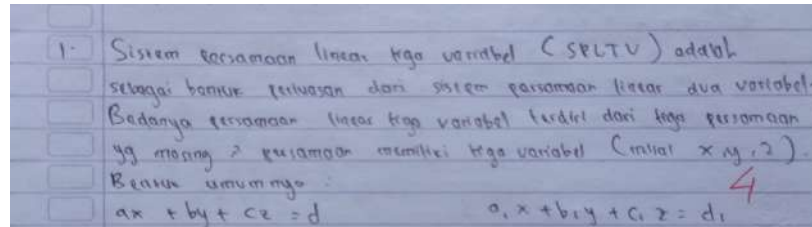 1. Sistem persamaan linear tiga variabel (SPLTV) adalah
sebagai bentuk perluasan dari sistem persamaan linear dua variabel.
Bedanya persamaan linear tiga variabel terdiri dari tiga persamaan
yg masing 2 persamaan memiliki tiga variabel (misal x, y, z).
Bentuk umumnya :
4
ax + by + cz = d a₁ x + b₁ y + c₁ z = d₁